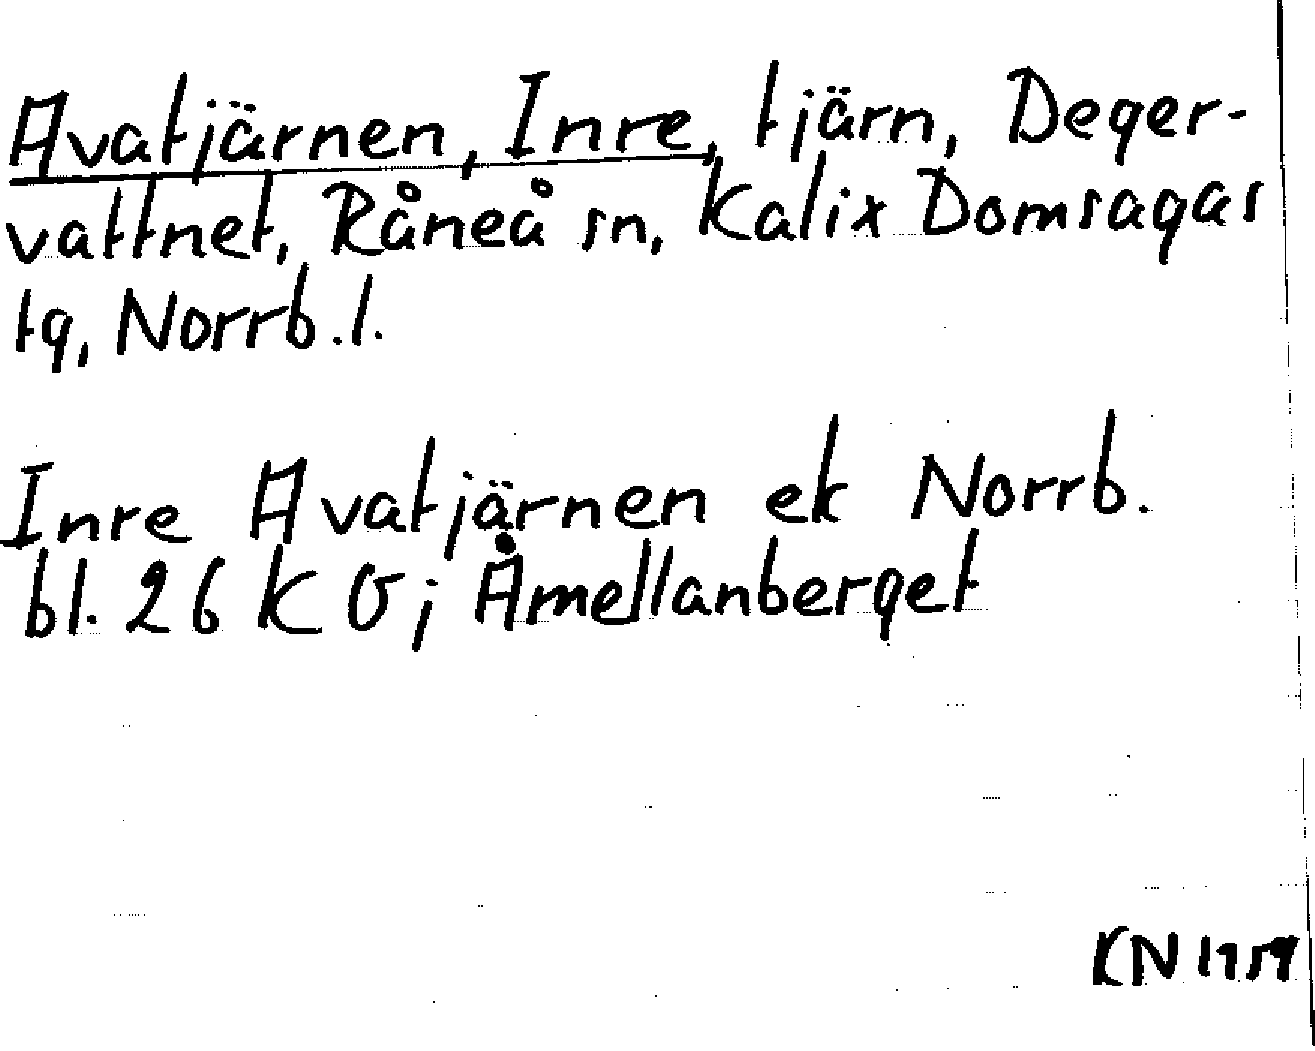 Avatjärnen, Inre, tjärn, Deger-
vattnet, Råneå sn, Kalix Domsagas
tg, Norrb.l.
Inre Avatjärnen ek Norrb.
bl. 26 K O; Åmellanberget
KN 1959